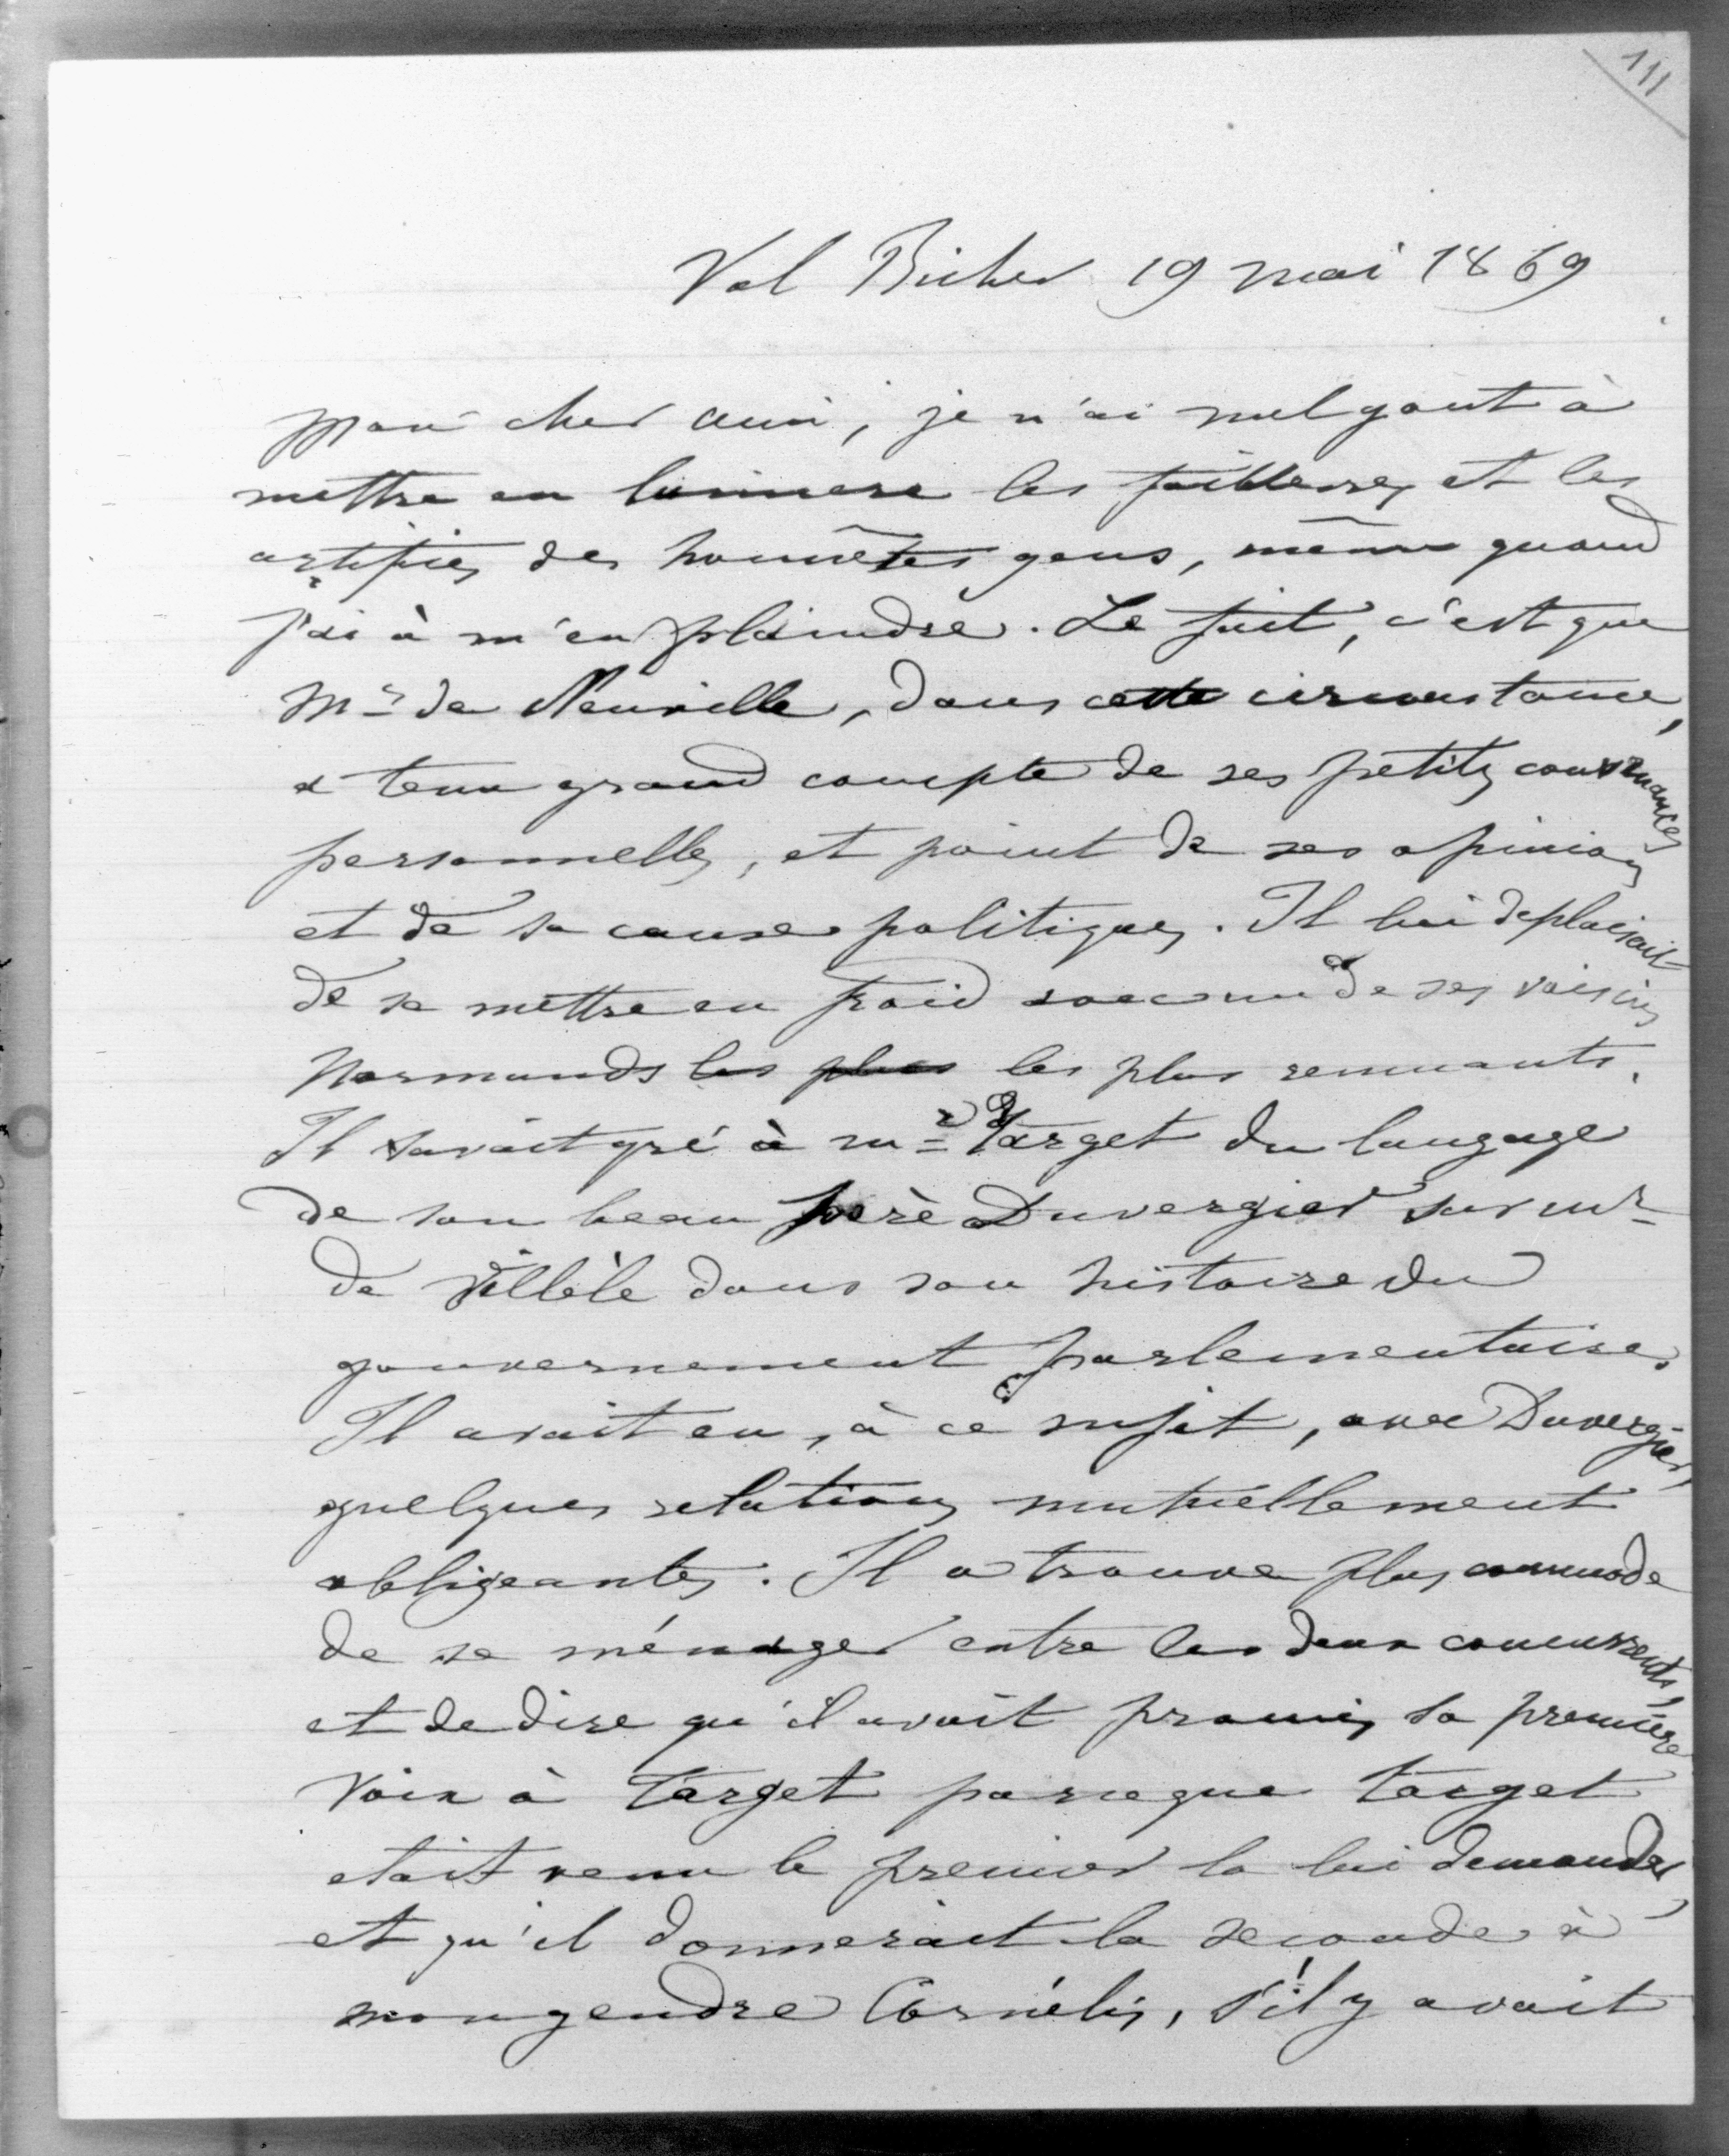 111
Val Richer 19 mai 1869
Mon cher ami, je n'ai nul gout à
mettre en lumiere les faiblesses et les
artifices des honnêtes gens, même quand
j'ai à m'en plaindre. Le fait, c'est que
Mr de Neuville, dans cette circonstance,
a tenu grand compte de ses petites convenances
personnelles, et point de ses opinions
et de sa cause politiques. Il lui deplaisait
de se mettre en froid avec un de ses voisins
Normands les plus les plus remuants.
Il savait gré à mr Target du langage
de son beau père Duvergier sur mr
de Villèle dans son histoire du
gouvernement parlementaire.
Il avait eu, à ce sujet, avec Duvergier,
quelques relations mutuellement
obligeantes. Il a trouve plus commode
de se ménager entre les deux concurrents,
et de dire qu'il avait promis sa première
voix à Target parceque Target
etait venu le premier la lui demander,
et qu'il donnerait la seconde à
mon gendre Cornélis, s'il y avait